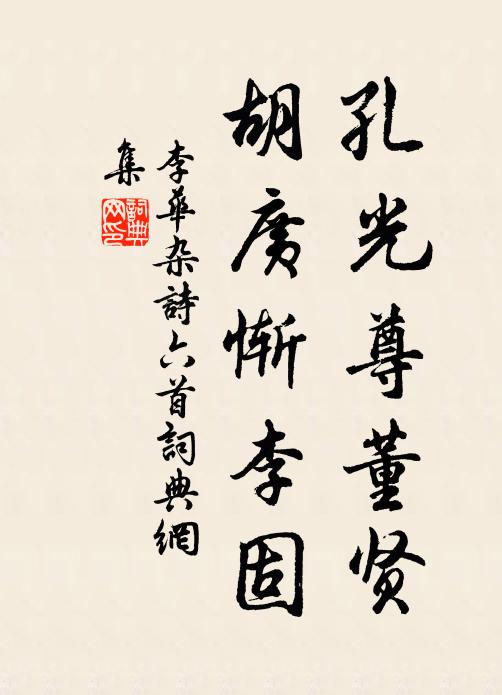 孔光尊董贤
胡广惭李固
李华杂詩六首詞典網
集
詞典網印